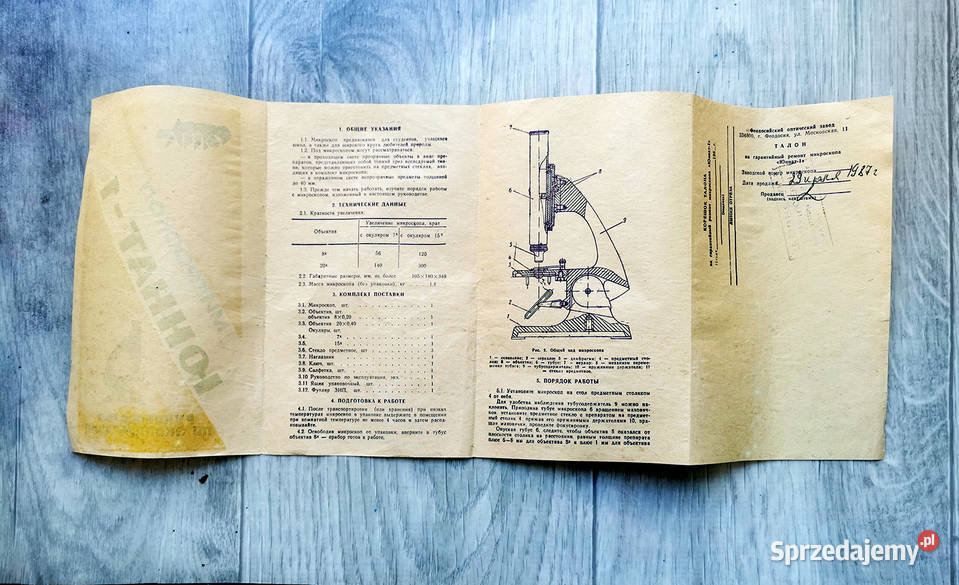 1. ОБЩИЕ УКАЗАНИЯ
1.1. Микроскоп предназначен для студентов, учащихся
школ, а также для широкого круга любителей природы.
1.2. Под микроскопом могут рассматриваться:
— в проходящем свете прозрачные объекты в виде пре-
паратов, представляющих собой тонкий срез исследуемой тка-
ни, которые можно приготовить на предметных стеклах, вхо-
дящих в комплект микроскопа;
— в отраженном свете непрозрачные предметы толщиной
до 40 мм.
1.3. Прежде чем начать работать, изучите порядок работы
с микроскопом, изложенный в настоящем руководстве.
2. ТЕХНИЧЕСКИЕ ДАННЫЕ
2.1. Кратность увеличения.
Объектив
Увеличение микроскопа, крат
с окуляром 7ˣ
с окуляром 15ˣ
8ˣ 56 120
20ˣ 140 300
2.2. Габаритные размеры, мм, не более 105×180×340
2.3. Масса микроскопа (без упаковки), кг
3. КОМПЛЕКТ ПОСТАВКИ
3.1. Микроскоп, шт. 1
3.2. Объектив, шт.
объектив 8×0,20 1
3.3. Объектив 20×0,40 1
Окуляры, шт.
3.4. 7ˣ 1
3.5. 15ˣ 1
3.6. Стекло предметное, шт.
3.7. Наглазник
3.8. Ключ, шт. 1
3.9. Салфетка, шт. 1
3.10 Руководство по эксплуатации, шт. 1
3.11 Ящик упаковочный, шт. 1
3.12. Футляр ЭНП, шт. 1
4. ПОДГОТОВКА К РАБОТЕ
4.1. После транспортировки (или хранения) при низких
температурах микроскоп в упаковке выдержите в помещении
при комнатной температуре не менее 4 часов и затем распа-
ковывайте.
4.2. Освободив микроскоп от упаковки, вверните в тубус
объектив 8ˣ — прибор готов к работе.
Рис. 1. Общий вид микроскопа
1 — основание; 2 — зеркало; 3 — диафрагма; 4 — предметный сто-
лик; 5 — объектив; 6 — тубус; 7 — окуляр; 8 — механизм переме-
щения тубуса; 9 — тубусодержатель; 10 — пружинные держатели; 11
— стекло предметное.
5. ПОРЯДОК РАБОТЫ
5.1. Установите микроскоп на стол предметным столиком
4 от себя.
Для удобства наблюдения тубусодержатель 9 можно на-
клонить. Приподняв тубус микроскопа 6 вращением махович-
ков, установите предметное стекло с препаратом на предмет-
ный столик 4, прижав его пружинными держателями 10, вра-
щая маховички, проведите фокусировку.
Опуская тубус 6, следите, чтобы объектив 5 оказался от
плоскости столика на расстоянии, равным толщине препарата
плюс 6—8 мм для объектива 8ˣ и плюс 1 мм для объектива
КОРЕШОК ТАЛОНА
на гарантийный ремонт микроскопа «Юннат-1»
Линия отреза
Феодосийский оптический завод
г. Феодосия, ул. Московская, 11
ТАЛОН
на гарантийный ремонт микроскопа
«Юннат-1»
Заводской номер микроскопа
Дата продажи 1987 г
Продавец
(подпись, штамп)
ЮННАТ-1
Sprzedajemy.pl